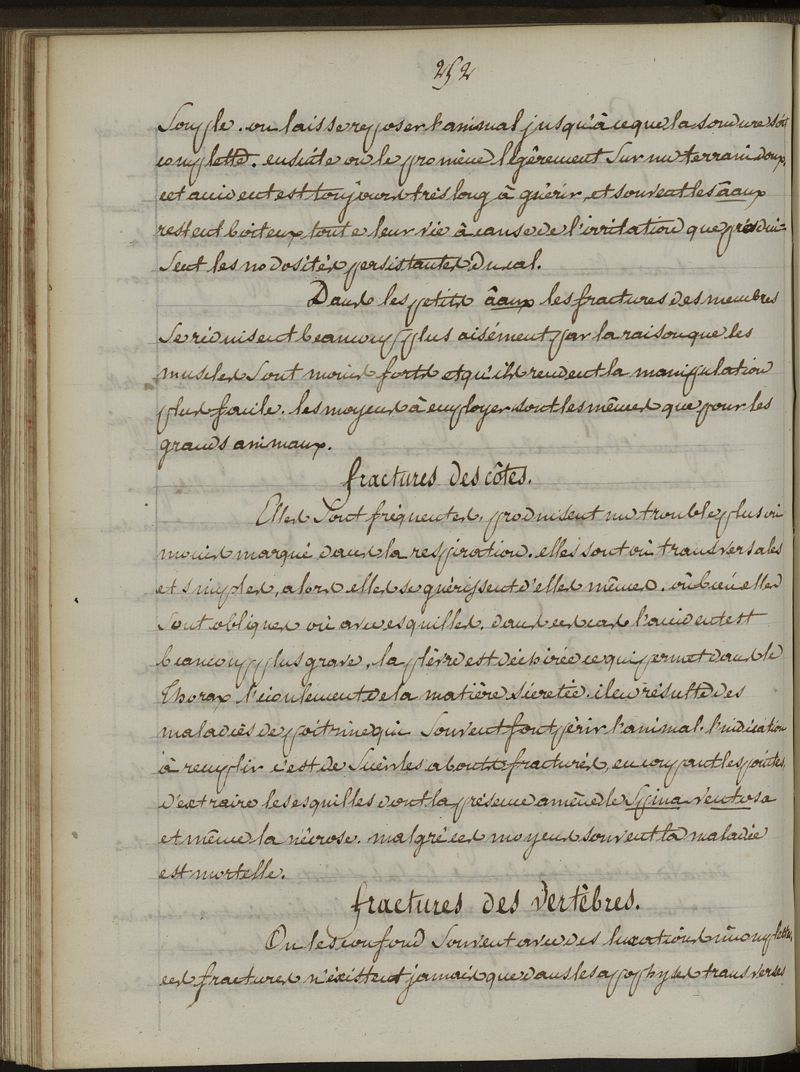 252
Souple. on laisse reposer l'animal jusqu'à ce que la soudure soit
complette. ensuite on le promène légèrement sur un terrain doux,
cet accident est toujours très long à guérir, et souvent les âaux
restent boiteux toute leur vie à cause de l'irritation que produi-
sent les nodosités persistantes du cal.
Dans les petits âaux les fractures des membres
se réduisent beaucoup plus aisément par la raison que les
muscles sont moins forts et qu'ils rendent la manipulation
plus facile. les moyens à employer sont les mêmes que pour les
grands animaux.
fractures des côtes.
Elles sont fréquentes, produisent un trouble plus ou
moins marqué dans la respiration. elles sont où transversales
et simples, alors elles se guérissent d'elles mêmes. où bien elles
sont obliques où avec esquilles. dans ces cas l'accident est
beaucoup plus grave, la plèvre est déchirée ce qui permet dans le
Thorax l'écoulement de la matière sécretée. il en résulte des
maladies de poitrine qui souvent font périr l'animal. l'indication
à remplir c'est de scier les abouts fracturés, en coupant les pointes,
d'extraire les esquilles dont la présence amène le Spina ventosa
et même la nécrose. malgré ces moyens souvent la maladie
est mortelle.
fractures des vertèbres.
On les confond souvent avec des luxations incomplettes,
ces fractures n'existent jamais que dans les apophyses transverses